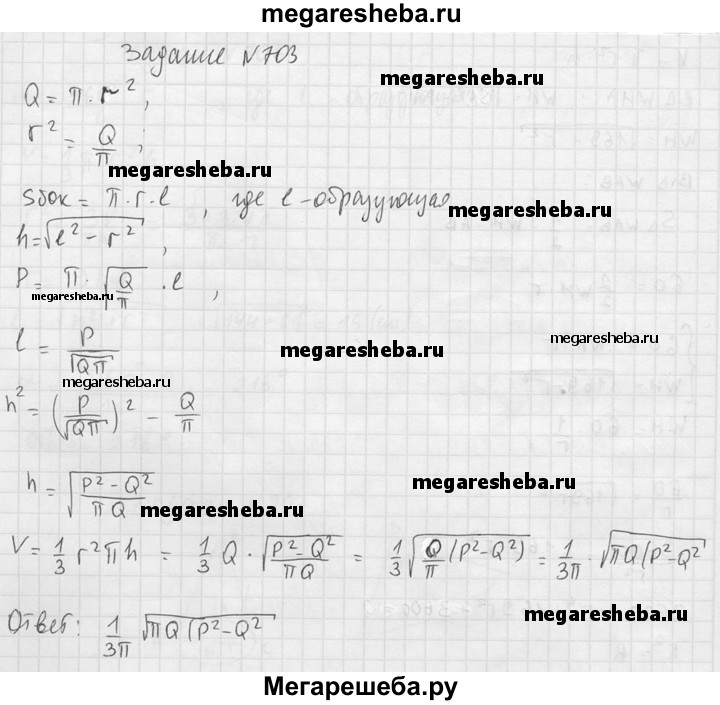 megaresheba.ru
Задание №703
megaresheba.ru
Q = π · r²,
r² = Q/π ;
megaresheba.ru
Sбок = π · r · l , где l - образующая
megaresheba.ru
h = √(l² - r²) ,
P = π · √(Q/π) · l ,
megaresheba.ru
megaresheba.ru
l = P/√(Qπ)
megaresheba.ru
megaresheba.ru
h² = (P/√(Qπ))² - Q/π
h = √((P² - Q²)/(πQ))
megaresheba.ru
megaresheba.ru
V = 1/3 r² π h = 1/3 Q · √((P² - Q²)/(πQ)) = 1/3 √(Q/π (P² - Q²)) = 1/3π · √(πQ(P² - Q²
megaresheba.ru
Ответ: 1/3π √(πQ(P² - Q²
megaresheba.ru
Мегарешеба.ру